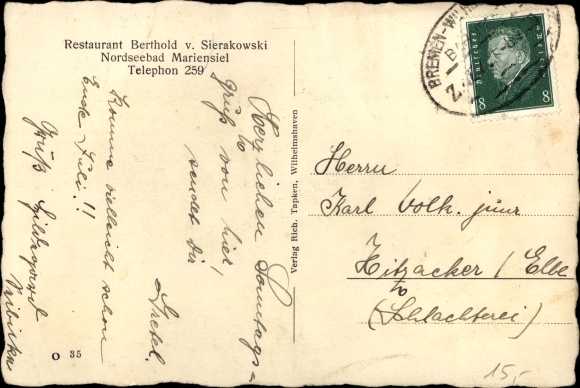 Restaurant Berthold v. Sierakowski
Nordseebad Mariensiel
Telephon 259
Herzlichen Sonntags=
gruß von hier,
sendet dir
Komme vielleicht schon
Ende Juli!!
Gruß Hildegard
O 35
Verlag Rich. Tapken, Wilhelmshaven
BREMEN-WILH
Deutsches Reich
8 8
Herrn
Karl Volk. junr
Hitzacker / Elbe
(Schlachterei)
15,-